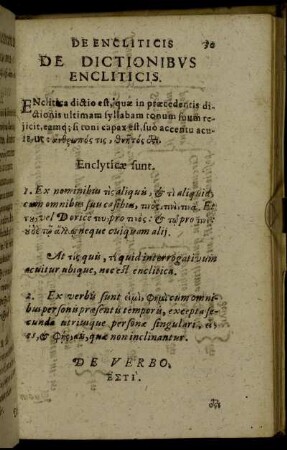 DE ENCLITICIS 30
DE DICTIONIBVS
ENCLITICIS.
ENclitica dictio est, quæ in præcedentis di-
ctionis ultimam syllabam tonum suum re-
jicit, eamq; si toni capax est, suo accentu acu-
it, ut ἄνθρωπός τις, θνητός
Enclyticæ sunt.
1. Ex nominibus τὶς aliquis, & τὶ aliquid,
cum omnibus suis casibus,
vel Dorice pro τινὸς: & τῷ pro
neque cuiquam alij.
At τίς quis, τί quid interrogativum
acuitur ubique, nec est enclitica.
2. Ex verbis sunt εἰμὶ, φημὶ cum omni-
bus personis præsentis temporis, excepta se-
cunda utriusque personæ singulari,
& φῂς, quæ non inclinantur.
DE VERBO
ΕΣΤΙ'.